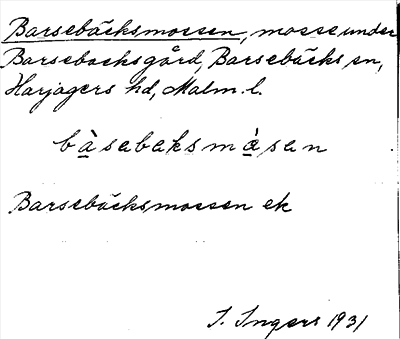 Barsebäcksmossen, mosse under
Barsebäcksgård, Barsebäcks sn,
Harjagers hd, Malm. l.
bàsabaksmåsen
Barsebäcksmossen ek
I. Ingers 1931